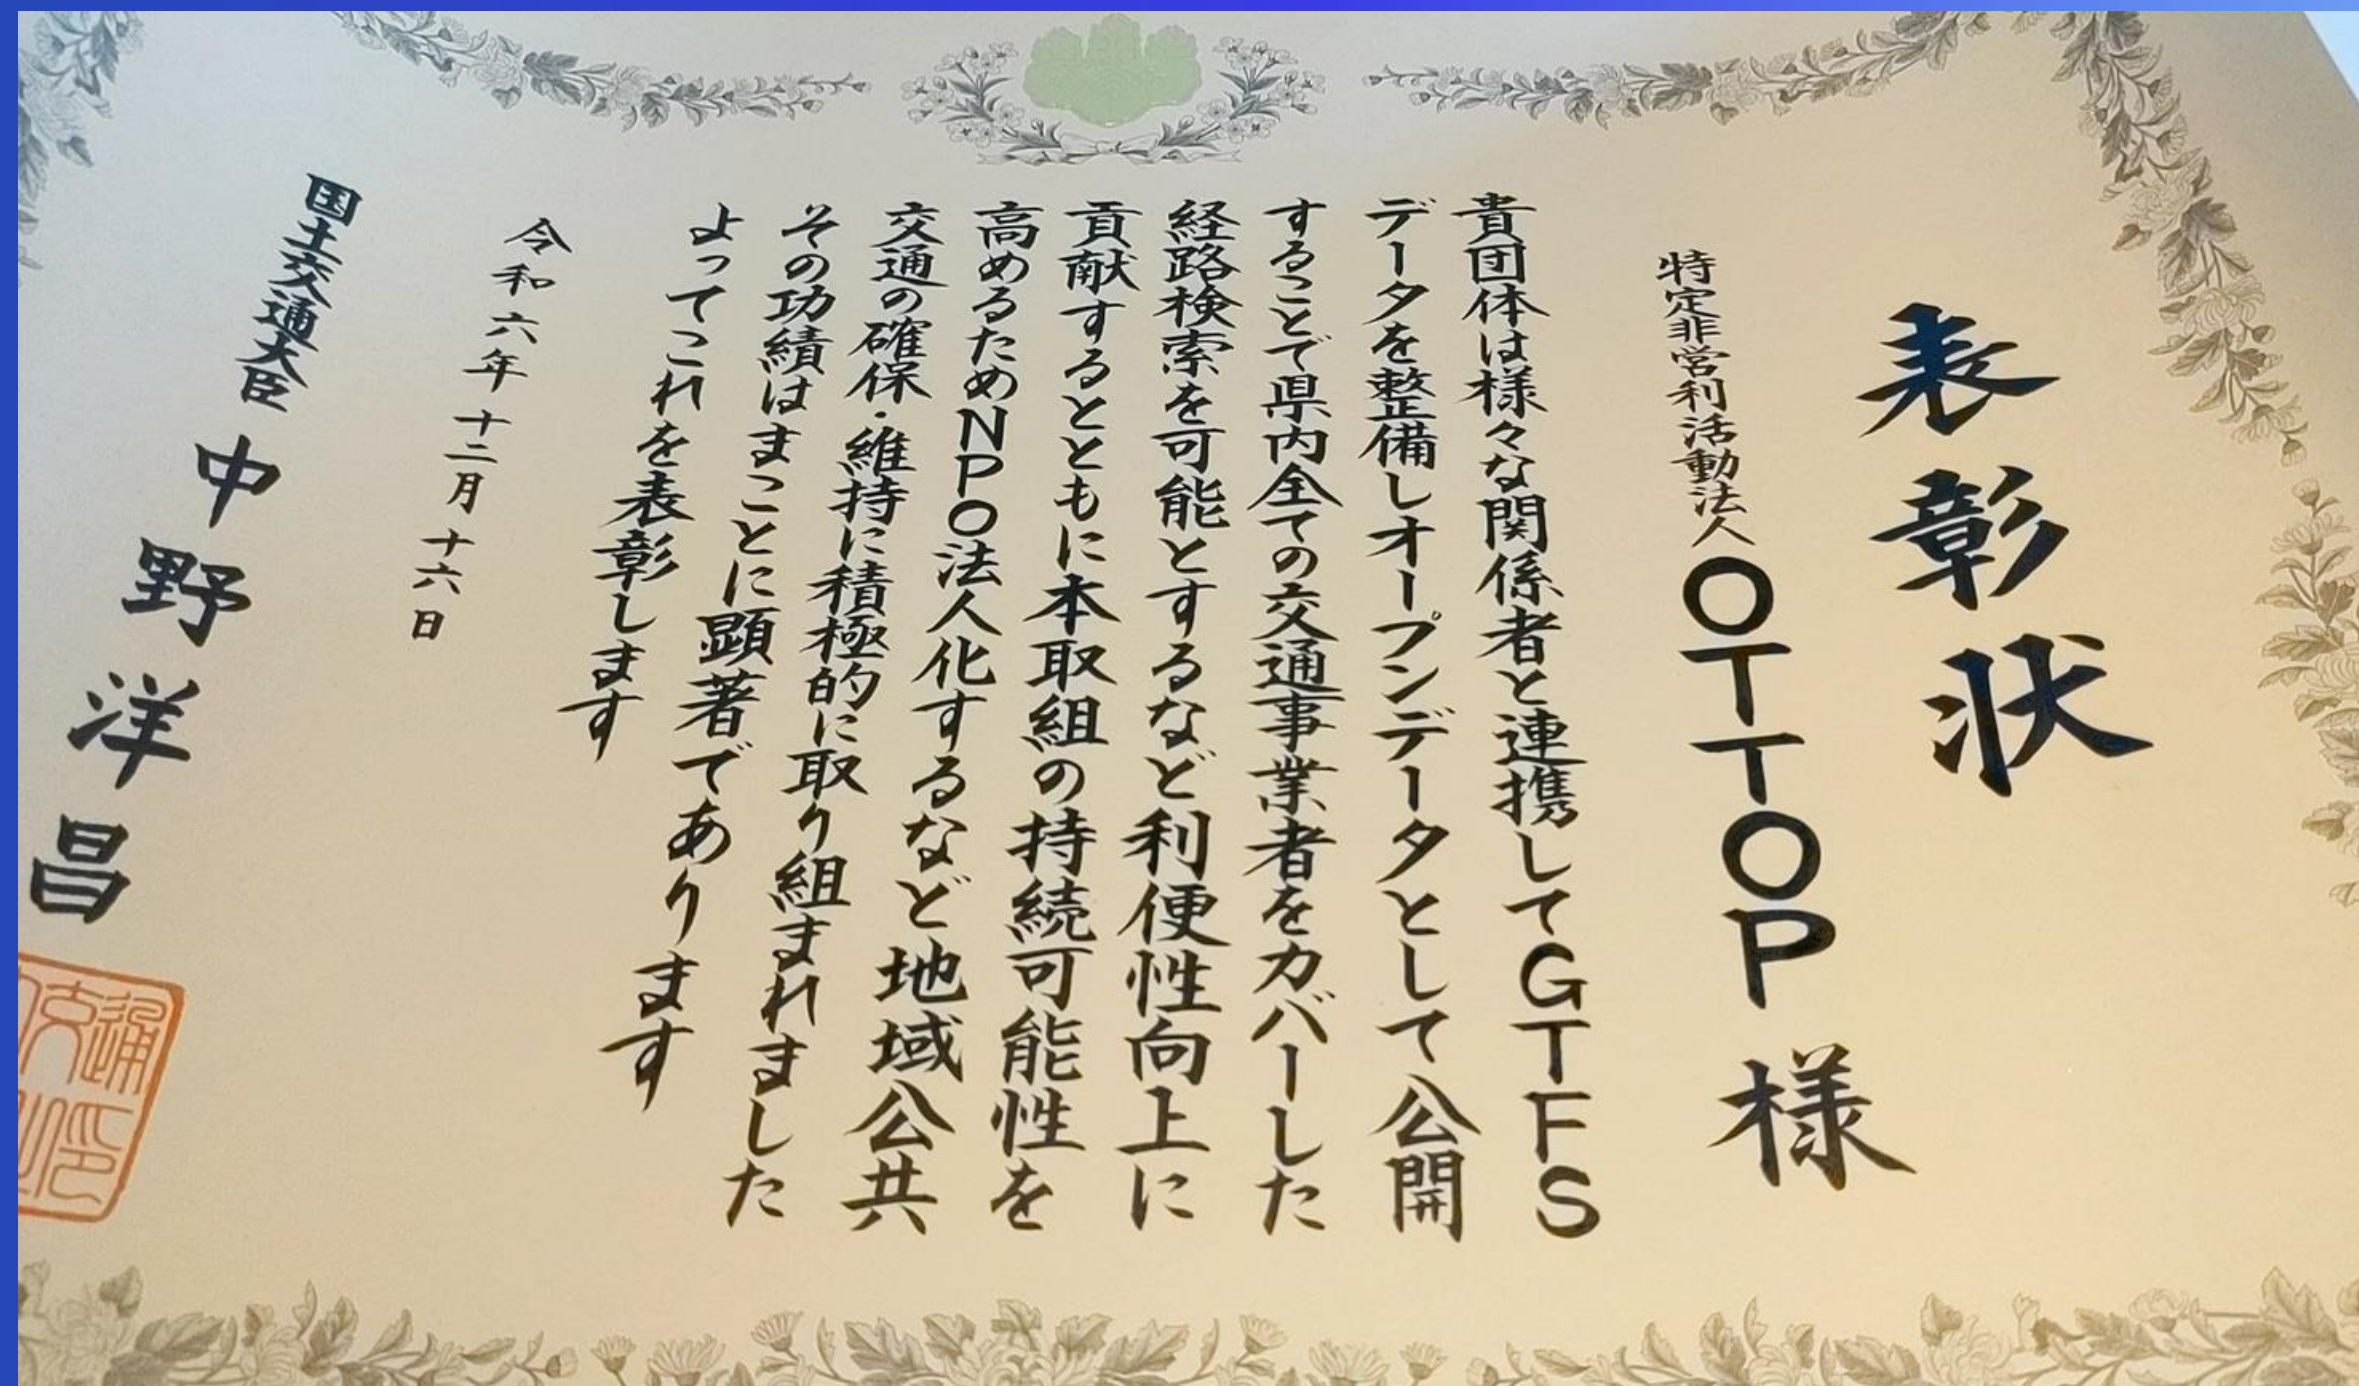 表彰状
特定非営利活動法人OTTOP様
貴団体は様々な関係者と連携してGTFS
データを整備しオープンデータとして公開
することで県内全ての交通事業者をカバーした
経路検索を可能とするなど利便性向上に
貢献するとともに本取組の持続可能性を
高めるためNPO法人化するなど地域公共
交通の確保・維持に積極的に取り組まれました
その功績はまことに顕著であります
よってこれを表彰します
令和六年十二月十六日
国土交通大臣 中野洋昌